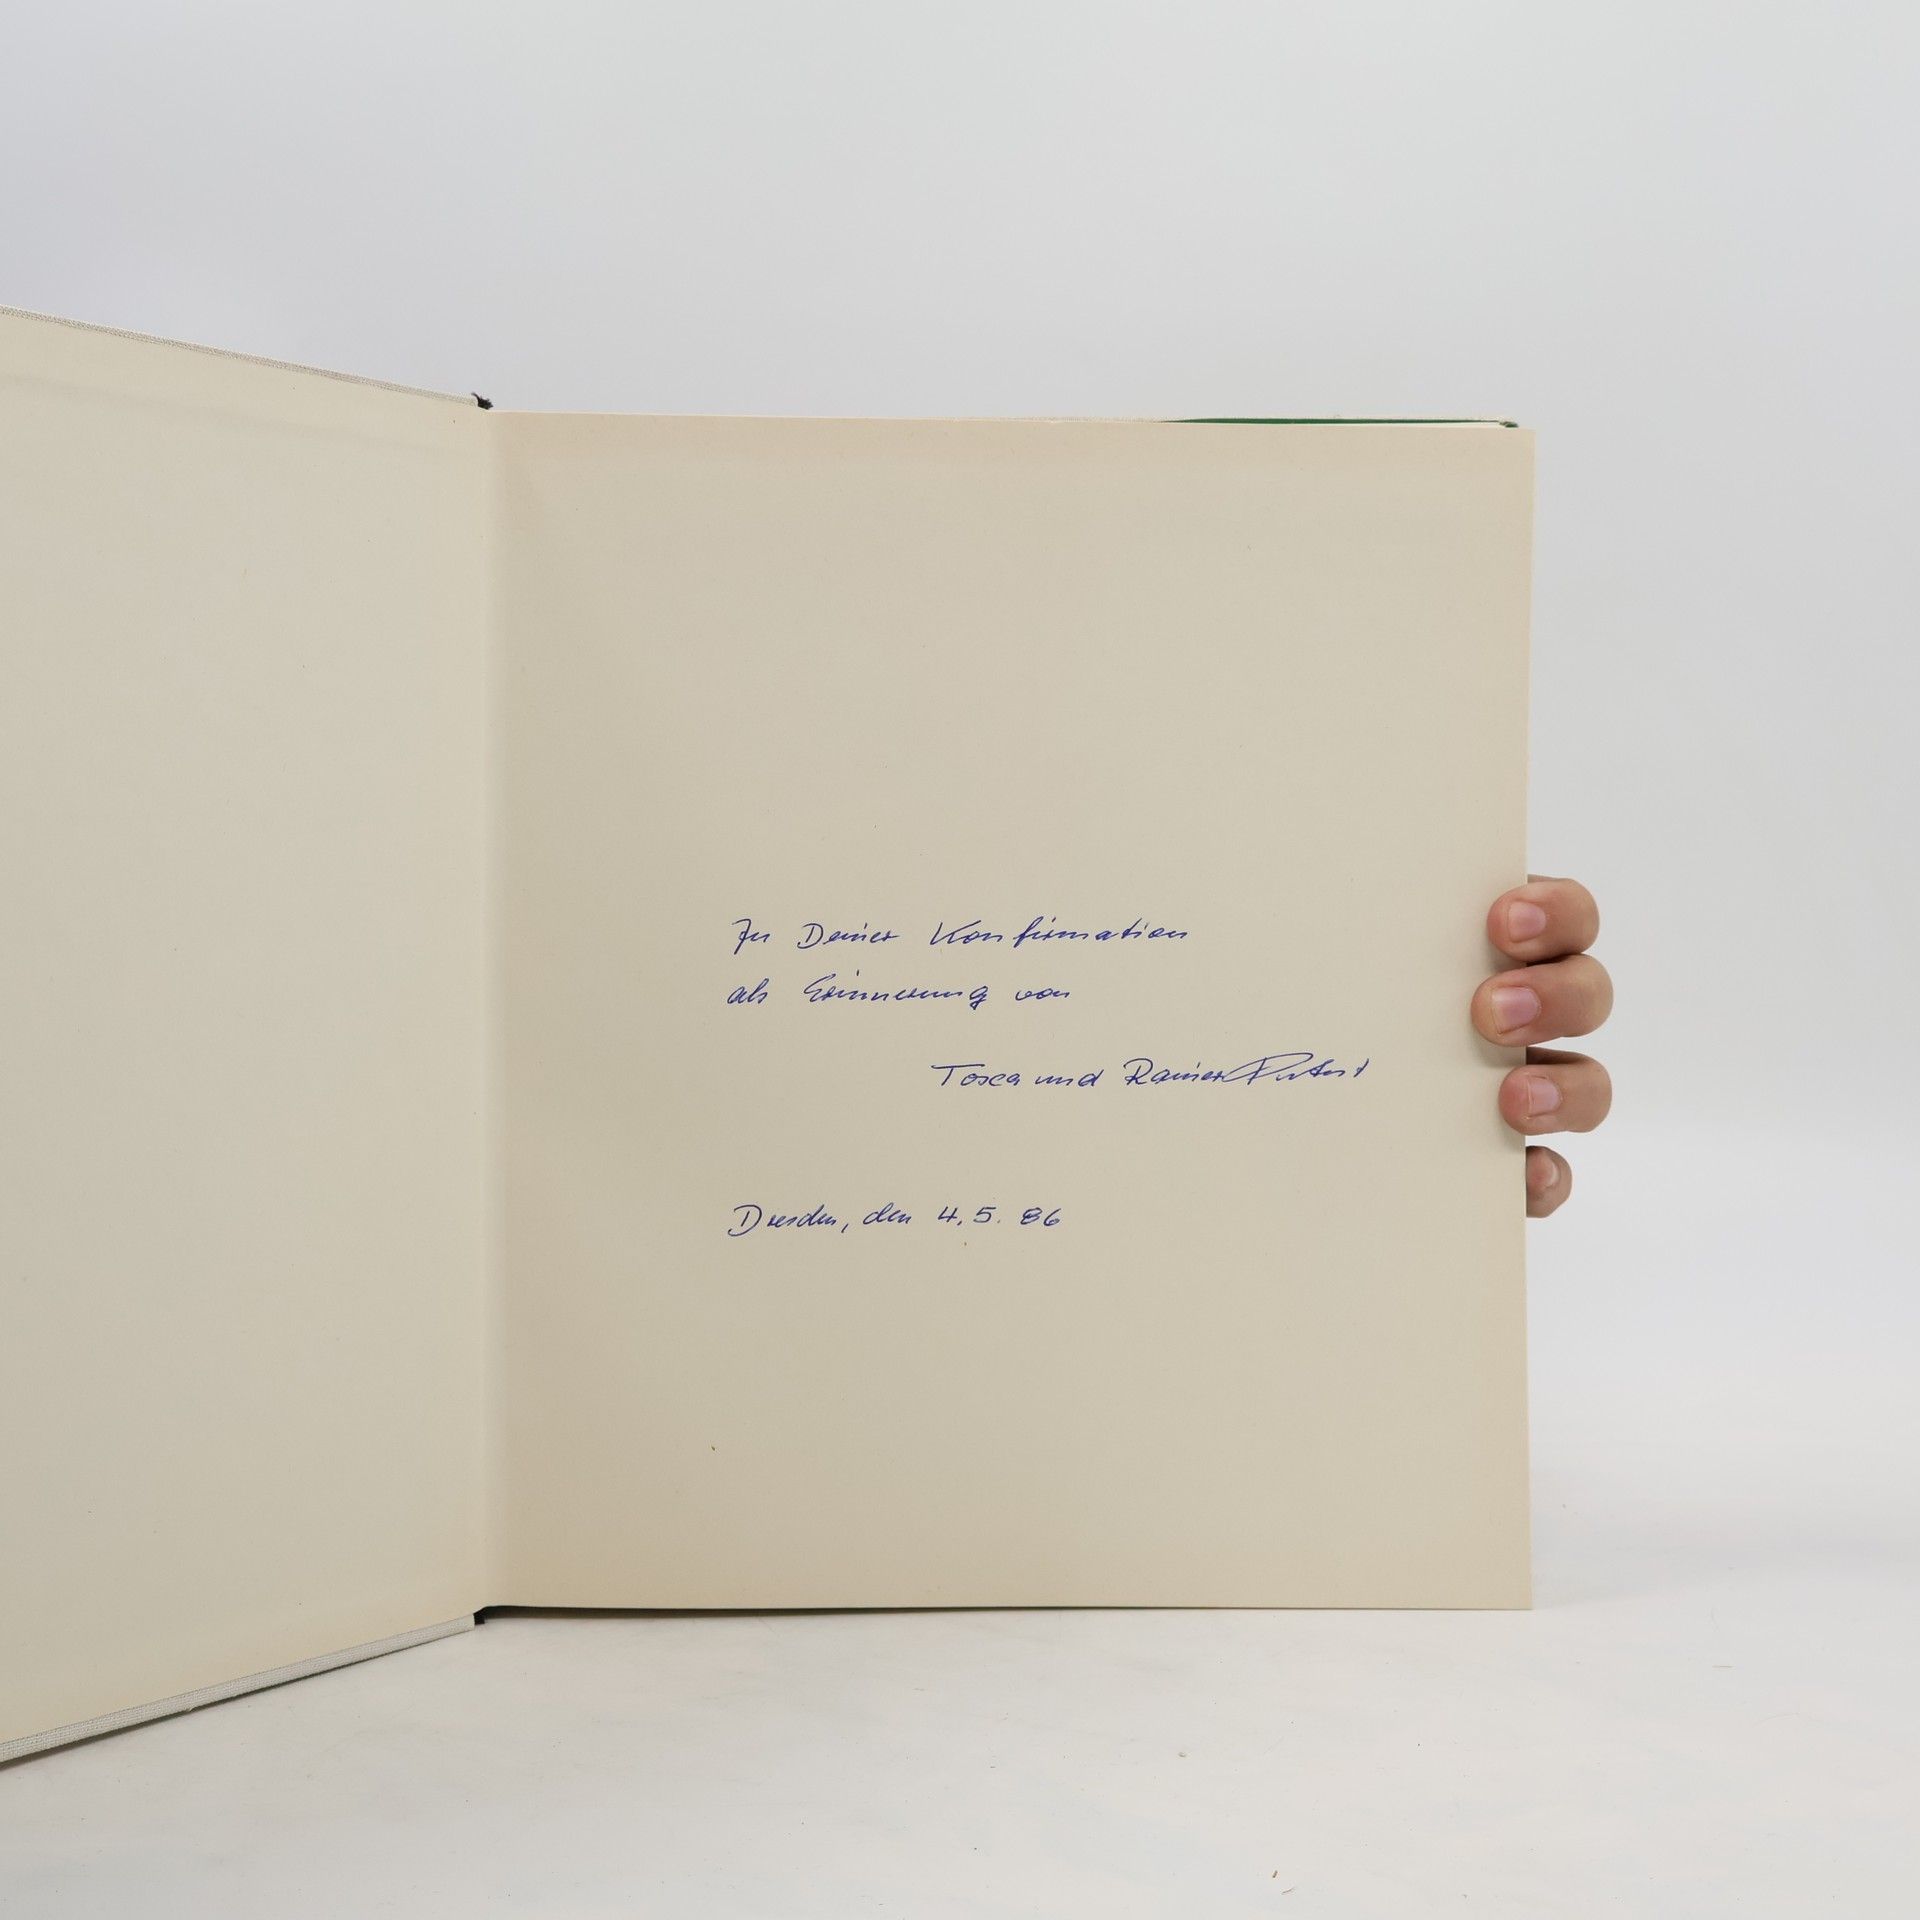 Zu Deiner Konfirmation
als Erinnerung von
Tosca und Rainer
Dresden, den 4.5.86